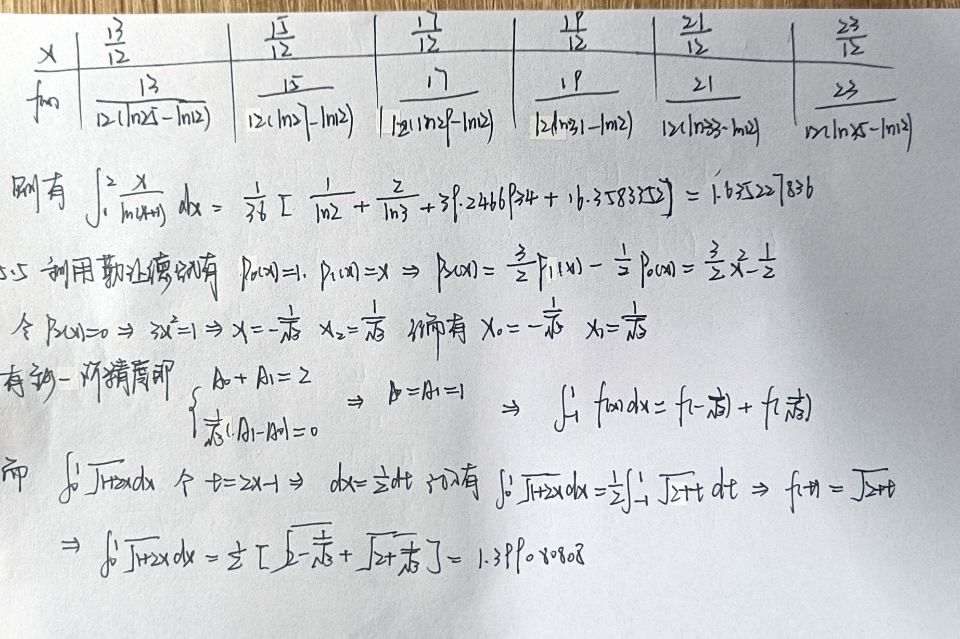 x 13/12 15/12 17/12 19/12 21/12 23/12
f(x) 13/12(ln25-ln12) 15/12(ln27-ln12) 17/12(ln29-ln12) 19/12(ln31-ln12) 21/12(ln33-ln12) 23/12(ln35-ln12)
则有 ∫₁² x/ln(x+1) dx = 1/36 [ 1/ln2 + 2/ln3 + 39.2466934 + 16.3583352] = 1.635227836
5.5 利用勒让德 有 P₀(x)=1. P₁(x)=x ⇒ P₂(x) = 3/2 P₁(x) - 1/2 P₀(x) = 3/2 x² - 1/2
令 P₂(x)=0 ⇒ 3x²=1 ⇒ x=-1/√3 x₂=1/√3 从而有 x₀=-1/√3 x₁=1/√3
有 一阶精度即 { A₀+A₁=2 1/√3(A₁-A₀)=0 ⇒ A₀=A₁=1 ⇒ ∫₋₁¹ f(x)dx = f(-1/√3) + f(1/√3)
而 ∫₀¹ √1+2x dx 令 t=2x-1 ⇒ dx=1/2 dt 则有 ∫₀¹ √1+2x dx = 1/2 ∫₋₁¹ √2+t dt ⇒ f(t) = √2+t
⇒ ∫₀¹ √1+2x dx = 1/2 [√2-1/√3 + √2+1/√3] = 1.399080808